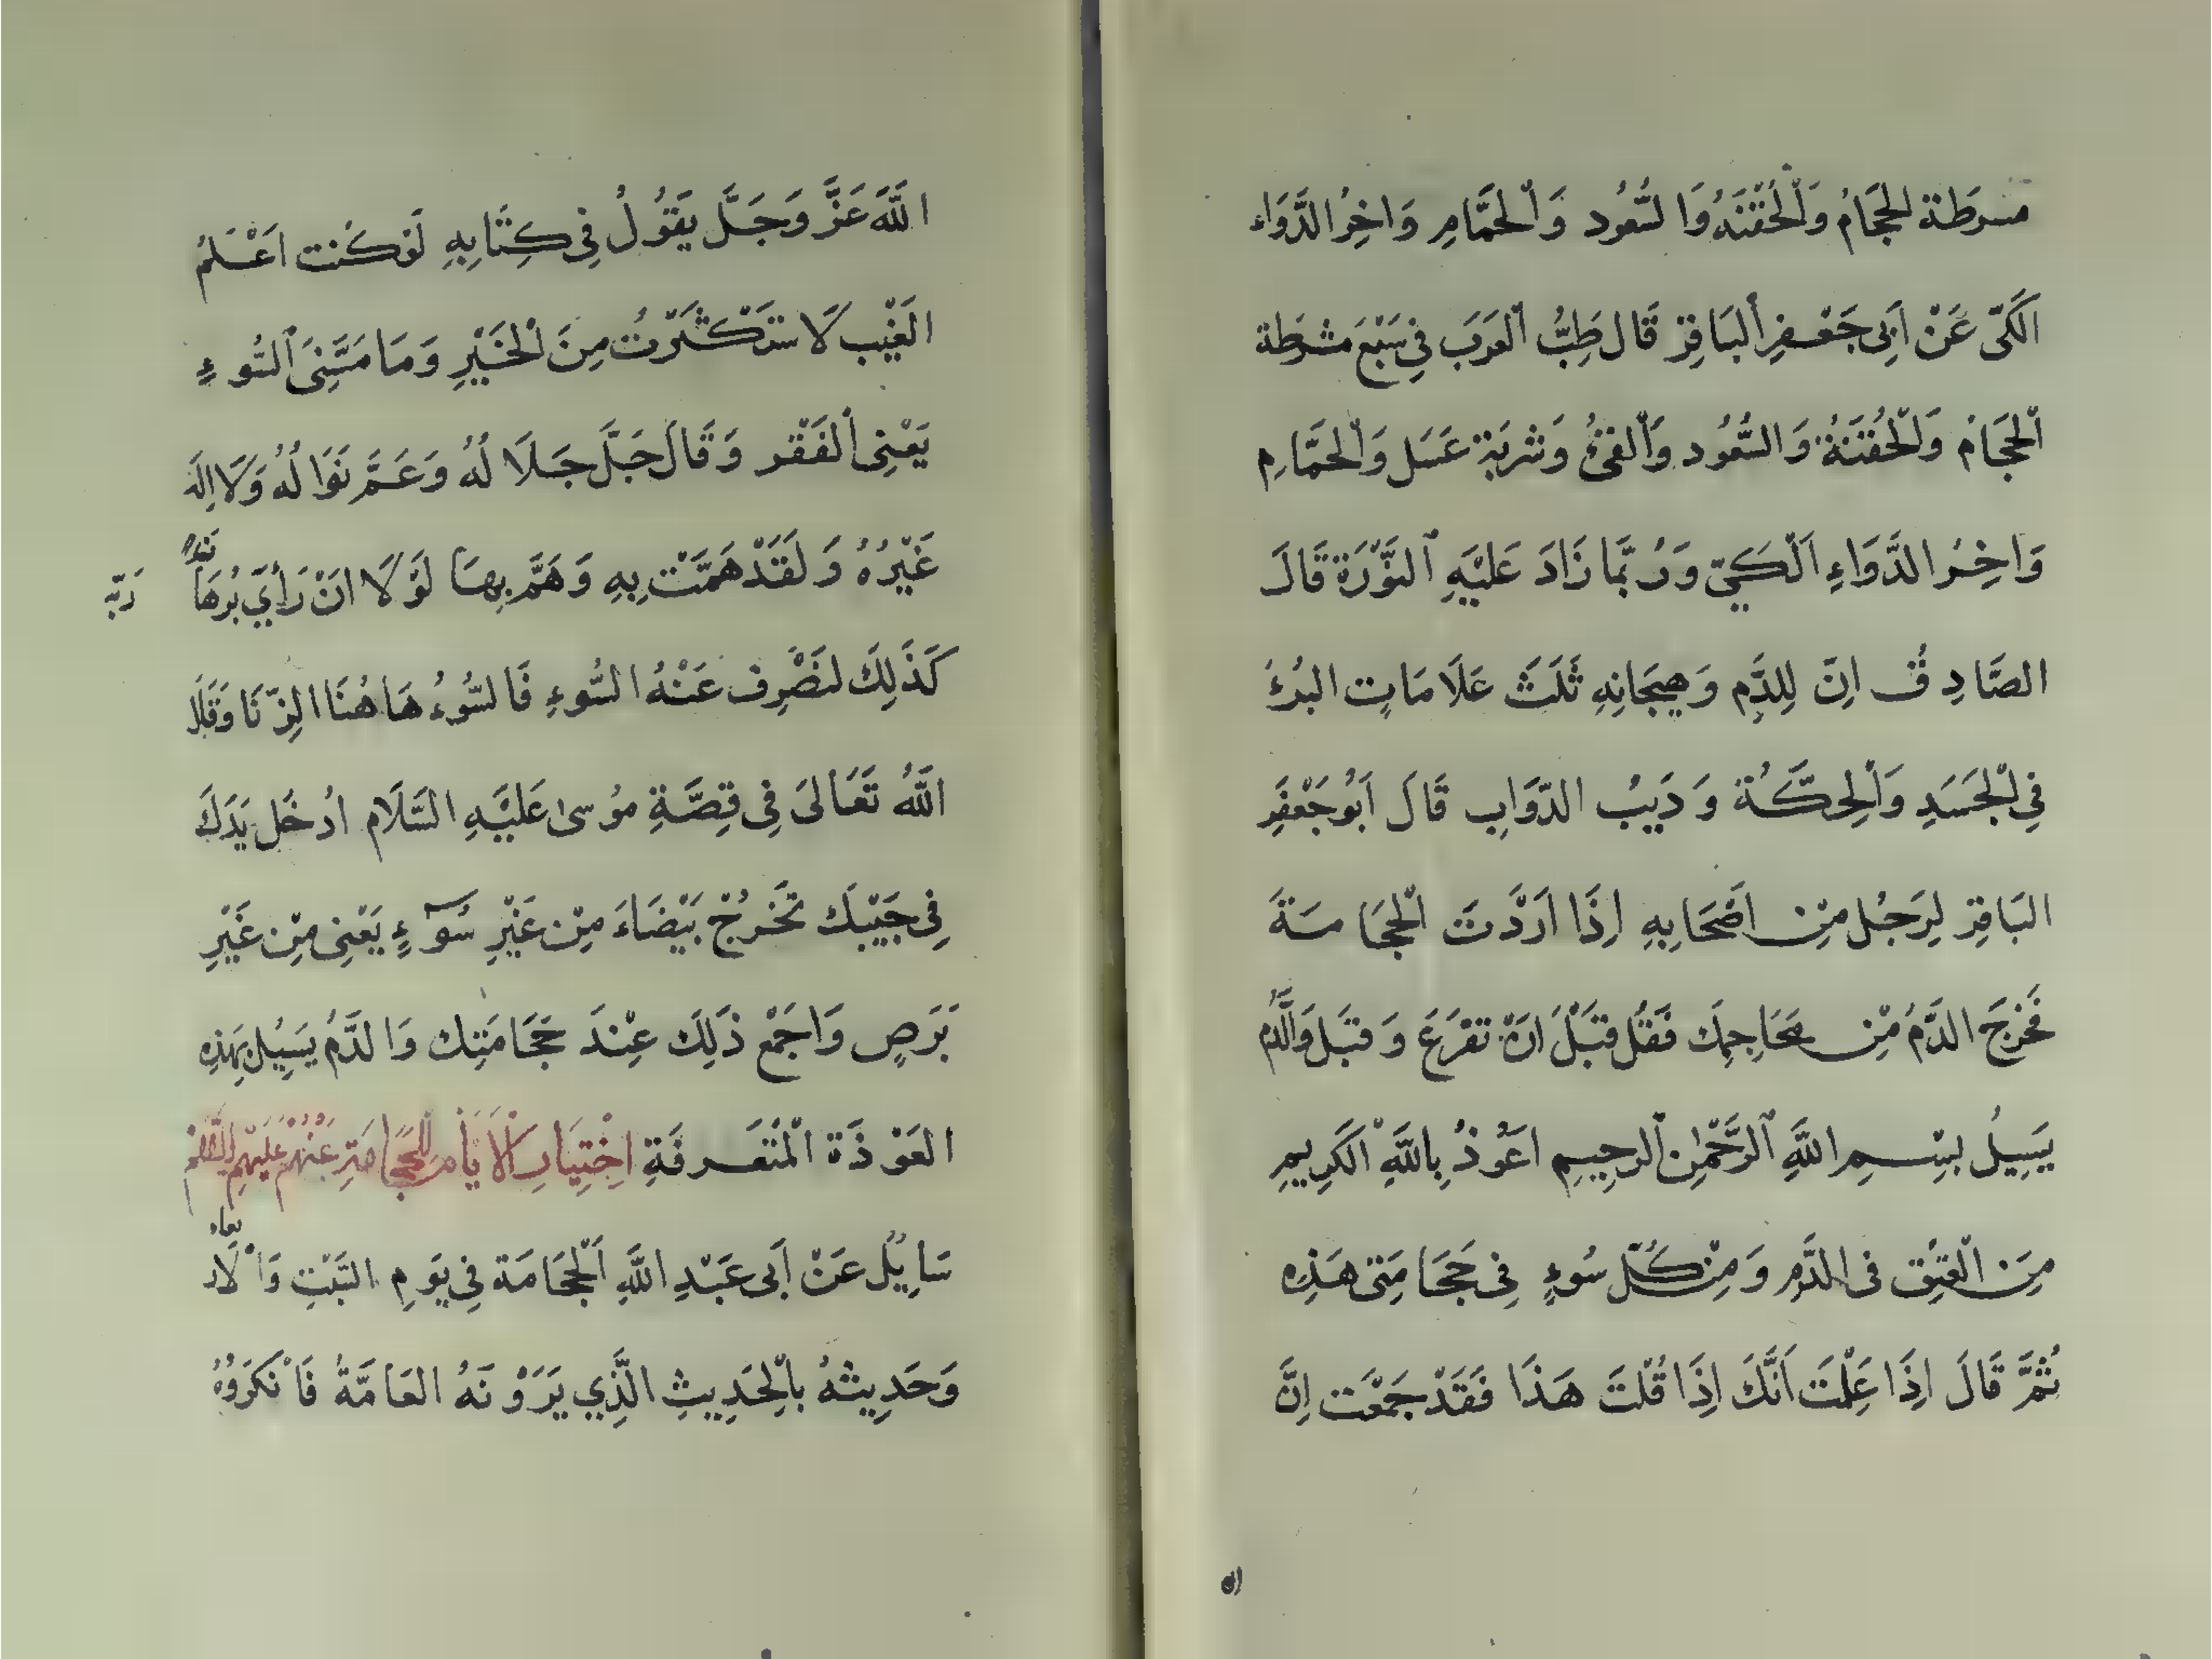 مسرطة الحجام وَالْحُقْنَهُ وَالسُّعُود وَالْحَمَّامِ وَاخِرُ الدَّوَاء
الكَىّ عَنْ اَبِى جَعْفرِ البَاقِرِ قَال طِبُّ العَرَبَ فِى سَبْعَ مشرطَة
الْحجَام وَالْحُقنَةُ وَالسُّعُود وَالقئُ وَشربَة عَسَل وَالْحمَّامِ
وَاخِرُ الدَّوَاءِ اَلْكَىّ وَرُبَّمَا زَادَ عَليْهِ النَّوْرَة قَالَ
الصَّادِقُ اِنّ لِلدَّمِ وَهيجَانِهِ ثَلَثَ عَلَامَاتٍ البُثرُ
فِى الْجَسَدِ وَالحِكَّةُ وَدَبِيبُ الدّوَابِ قَالَ اَبُو جَعْفَرِ
البَاقِرِ لِرَجُل مِنْ اصْحَابِهِ اِذَا اَرَدْتَ الْحِجَامَةَ
فَخَرجَ الدَّمُ مِنْ محَاجِمِكَ فَقُل قبَلَ اَنْ تفرَغَ وَقبَل وَالدَّمُ
يَسِيلُ بِسْمِ اللَّهِ الرَّحْمٰنِ الرحِيمِ اعَوُذُ بِاللَّهِ الكَرِيمِ
مِنَ الْعَيْنِ فى الدَّمِ وَمِنْ كُلّ سُوءٍ فِى حِجَامَتِى هَذِهِ
ثُمَّ قَالَ اِذَا عَلِمْتَ اَنَّكَ اِذَا قُلْتَ هَذَا فَقَدْ جمَعْت اِنَّ
ان
اللَّهَ عَزَّ وَجَلَّ يَقوُلُ فِى كِتَابِهِ لَوْ كُنت اعْلَمُ
الغَيْب لَاسْتَكْثَرْتُ مِنَ الْخَيْرِ وَمَا مَسَّنِىَ السُّوءِ
يَعْنِى الفَقْر وَقَالَ جَلَّ جَلَا لُهُ وَعَمَّ نَوَا لُهُ وَلَا اِلَهَ
غَيْرُهُ وَلَقَدْ هَمَّت بِهِ وَهَمَّ بِهَا لَوْلَا انْ رَأى بُرهَان رَبّه
كَذَلِكَ لنَصْرِف عَنْهُ السُّوءِ فَالسُّوُءُ هَاهُنَا الزِّنَا وَقَالَ
اللَّهُ تَعَالىَ فِى قِصَّةِ مُوسىٰ عَليَهِ السَّلَام ادُخل يَدَكَ
فِى جَيْبِكَ تَخْرُجْ بَيْضَاءَ مِنْ غَيْرِ سُوۤءٍ يَعْنِى مِنْ غَيْرِ
بَرَصٍ وَاجمَع ذَلِكَ عِنْدَ حَجَامَتِك وَالدَّمُ يَسِيُل بِهَذِهِ
العَوْذَة الْمُتَعَرفَةِ اِخْتِيَارِ الاَيَامِ لِلْحِجَامَتِ عَنْهُمْ عَلَيْهِمُ السَّلَمْ
سَايِلُ عَنْ اَبى عَبْدِ اللَّهِ اَلْحِجَامَة فِى يَومِ السَّبْتِ وَالْاربعاء
وَحَدِيثهُ بالْحَدِيثِ الَّذِي يَرَوْنَهُ العَامَّةُ فَانْكَرَوُهُ